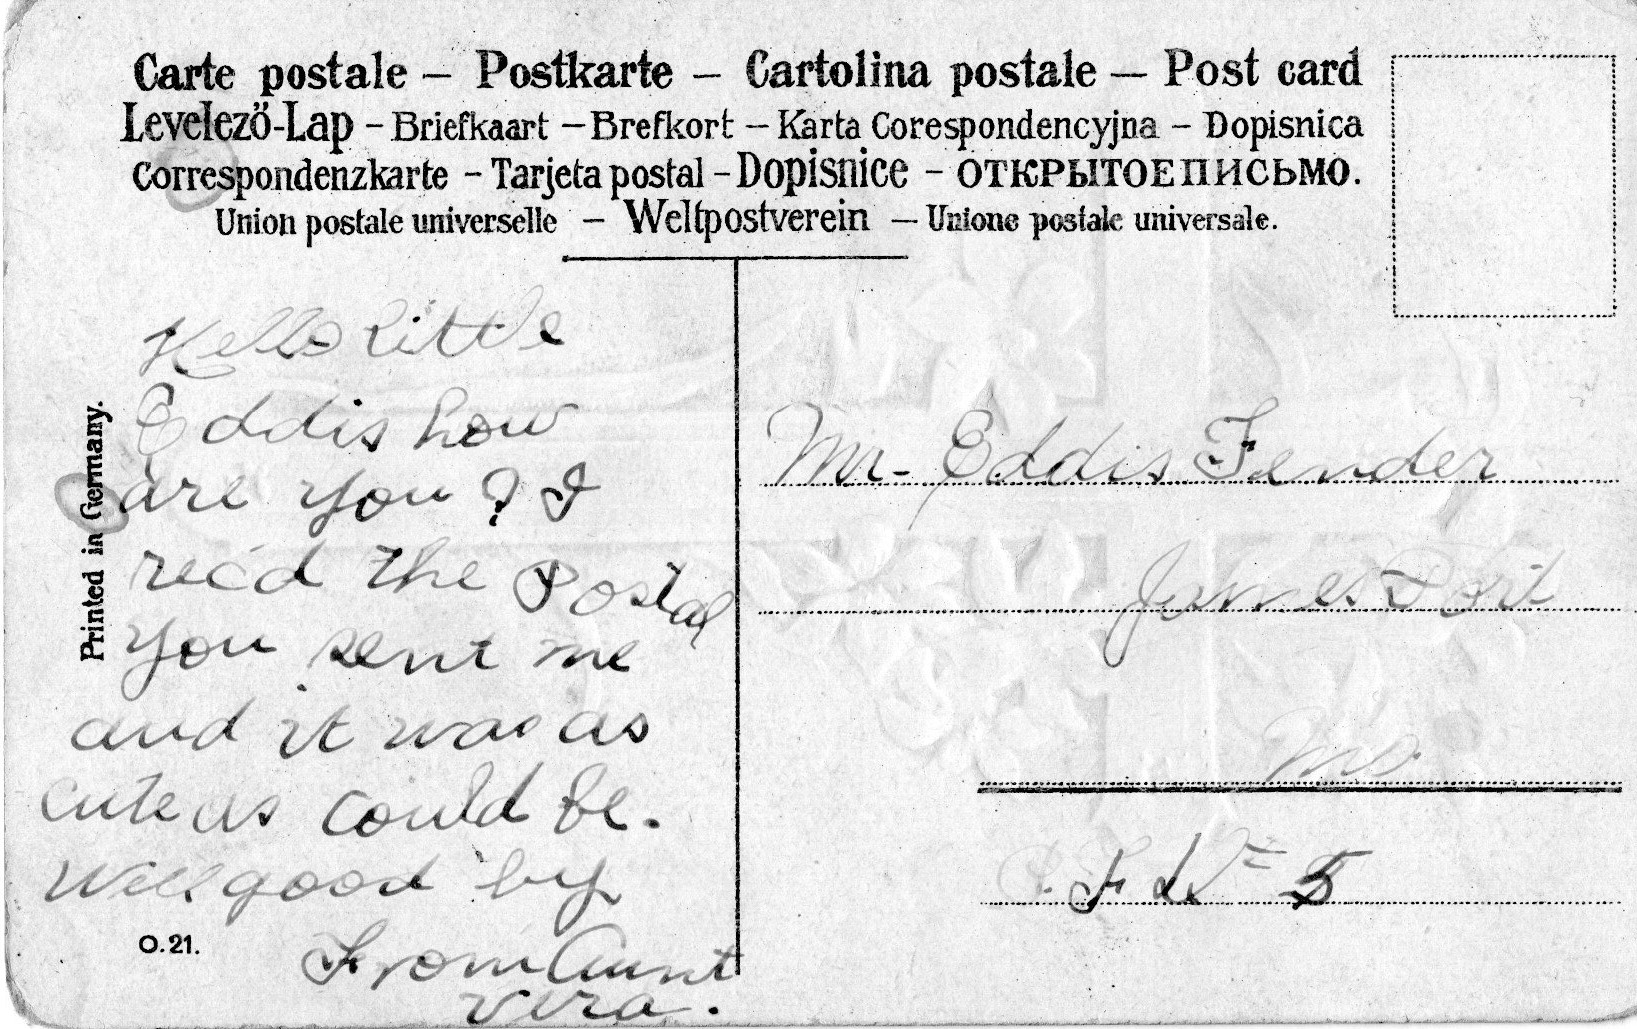 Carte postale – Postkarte – Cartolina postale – Post card
Levelező-Lap – Briefkaart – Brefkort – Karta Corespondencyjna – Dopisnica
Correspondenzkarte – Tarjeta postal – Dopisnice – ОТКРЫТОЕПИСЬМО.
Union postale universelle – Weltpostverein – Unione postale universale.
Printed in Germany.
Hello little
Eddis how
are you? I
rec'd the Postal
you sent me
and it was as
cute as could be.
Well good by
From Aunt
Vera.
O.21.
Mr- Eddis Fender
James Port
Mo.
F D = 5